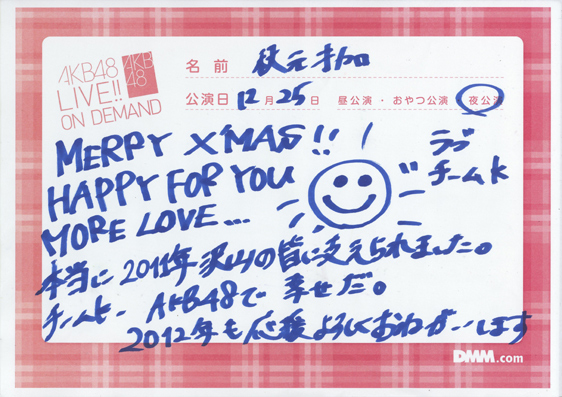 AKB48
LIVE!!
ON DEMAND
AKB
48
名前 秋元才加
公演日 12月25日 昼公演・おやつ公演・夜公演
MERRY X'MAS!!
HAPPY FOR YOU
MORE LOVE...
ラブ
チームK
本当に2011年沢山の皆に支えられました。
チームK、AKB48で幸せだ。
2012年も応援よろしくおねがいします
DMM.com